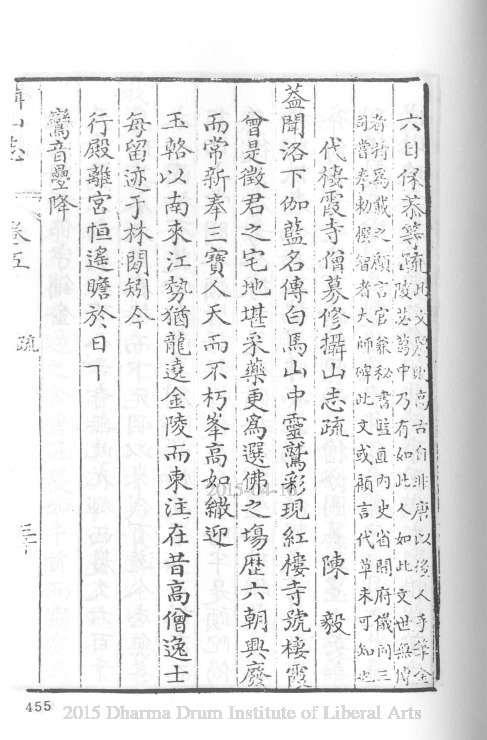 六日保恭等疏此文典則高古自非唐以後人手筆金
陵苾蒭中乃有如此人如此文世無傳
者特爲載之顧言官兼秘書監直內史省開府儀同三
司嘗奉勅撰智者大師碑此文或顧言代草未可知也
代棲霞寺僧募修攝山志疏 陳毅
葢聞洛下伽藍名傳白馬山中靈鷲彩現紅樓寺號棲霞
曾是徵君之宅地堪采藥更爲選佛之塲歷六朝興廢
而常新奉三寶人天而不朽峯高如繖迎
玉輅以南來江勢猶龍遶金陵而東注在昔高僧逸士
每留迹于林間矧今
行殿離宮恒遙瞻於日下
鸞音疊降
山志 卷五 疏
455
2015 Dharma Drum Institute of Liberal Arts